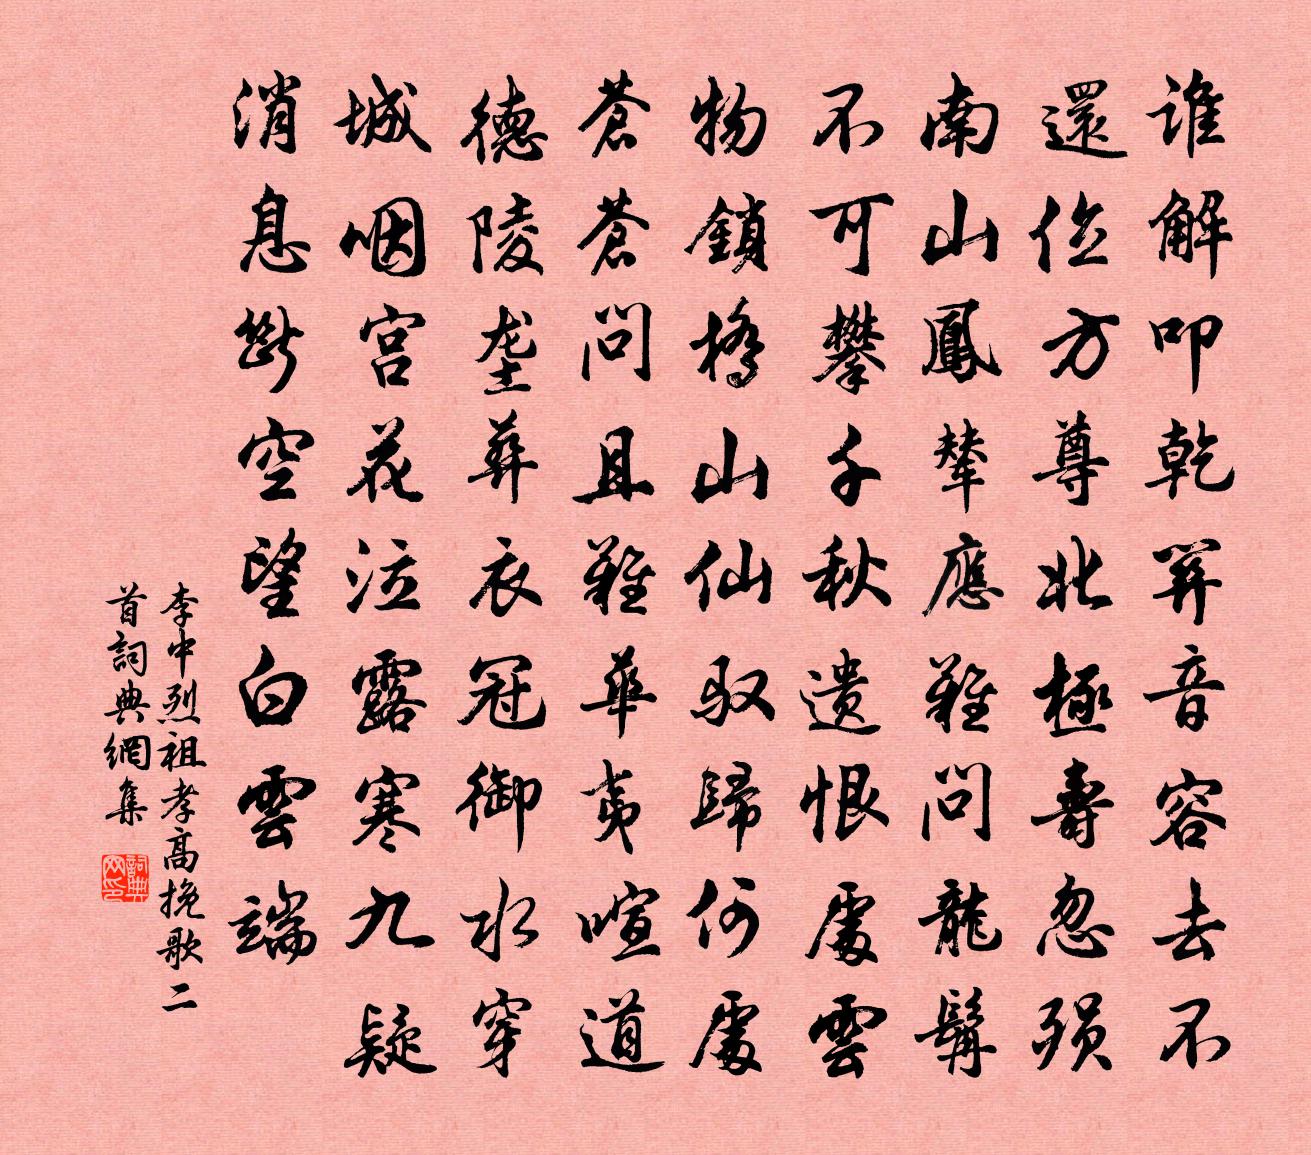 誰解叩乾關音容去不
還位方尊北極壽忽殞
南山鳳輦應難問龍髯
不可攀千秋遺恨處雲
物鎖橋山仙馭歸何處
蒼蒼問且難華夷喧道
德陵壟葬衣冠御水穿
城咽宮花泣露寒九疑
消息斷空望白雲端
李中烈祖孝高挽歌二
首詞典網集
詞典
网印